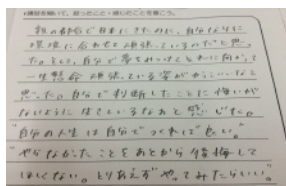 講話を聞いて、思ったこと・感じたことを書こう。
親の都合で日本にきたのに、自分なりに
環境に合わせて頑張っているのだと思
った。そして、自分で夢をみつけてそれに向かって
一生懸命頑張っている姿がかっこいいなと
思った。自分で判断したことに悔いが
ないように生きているなあと感じた。
"自分の人生は自分でつくれて良い。"
"やらなかったことをあとから後悔して
ほしくない。とりあえずやってみたらいい。"